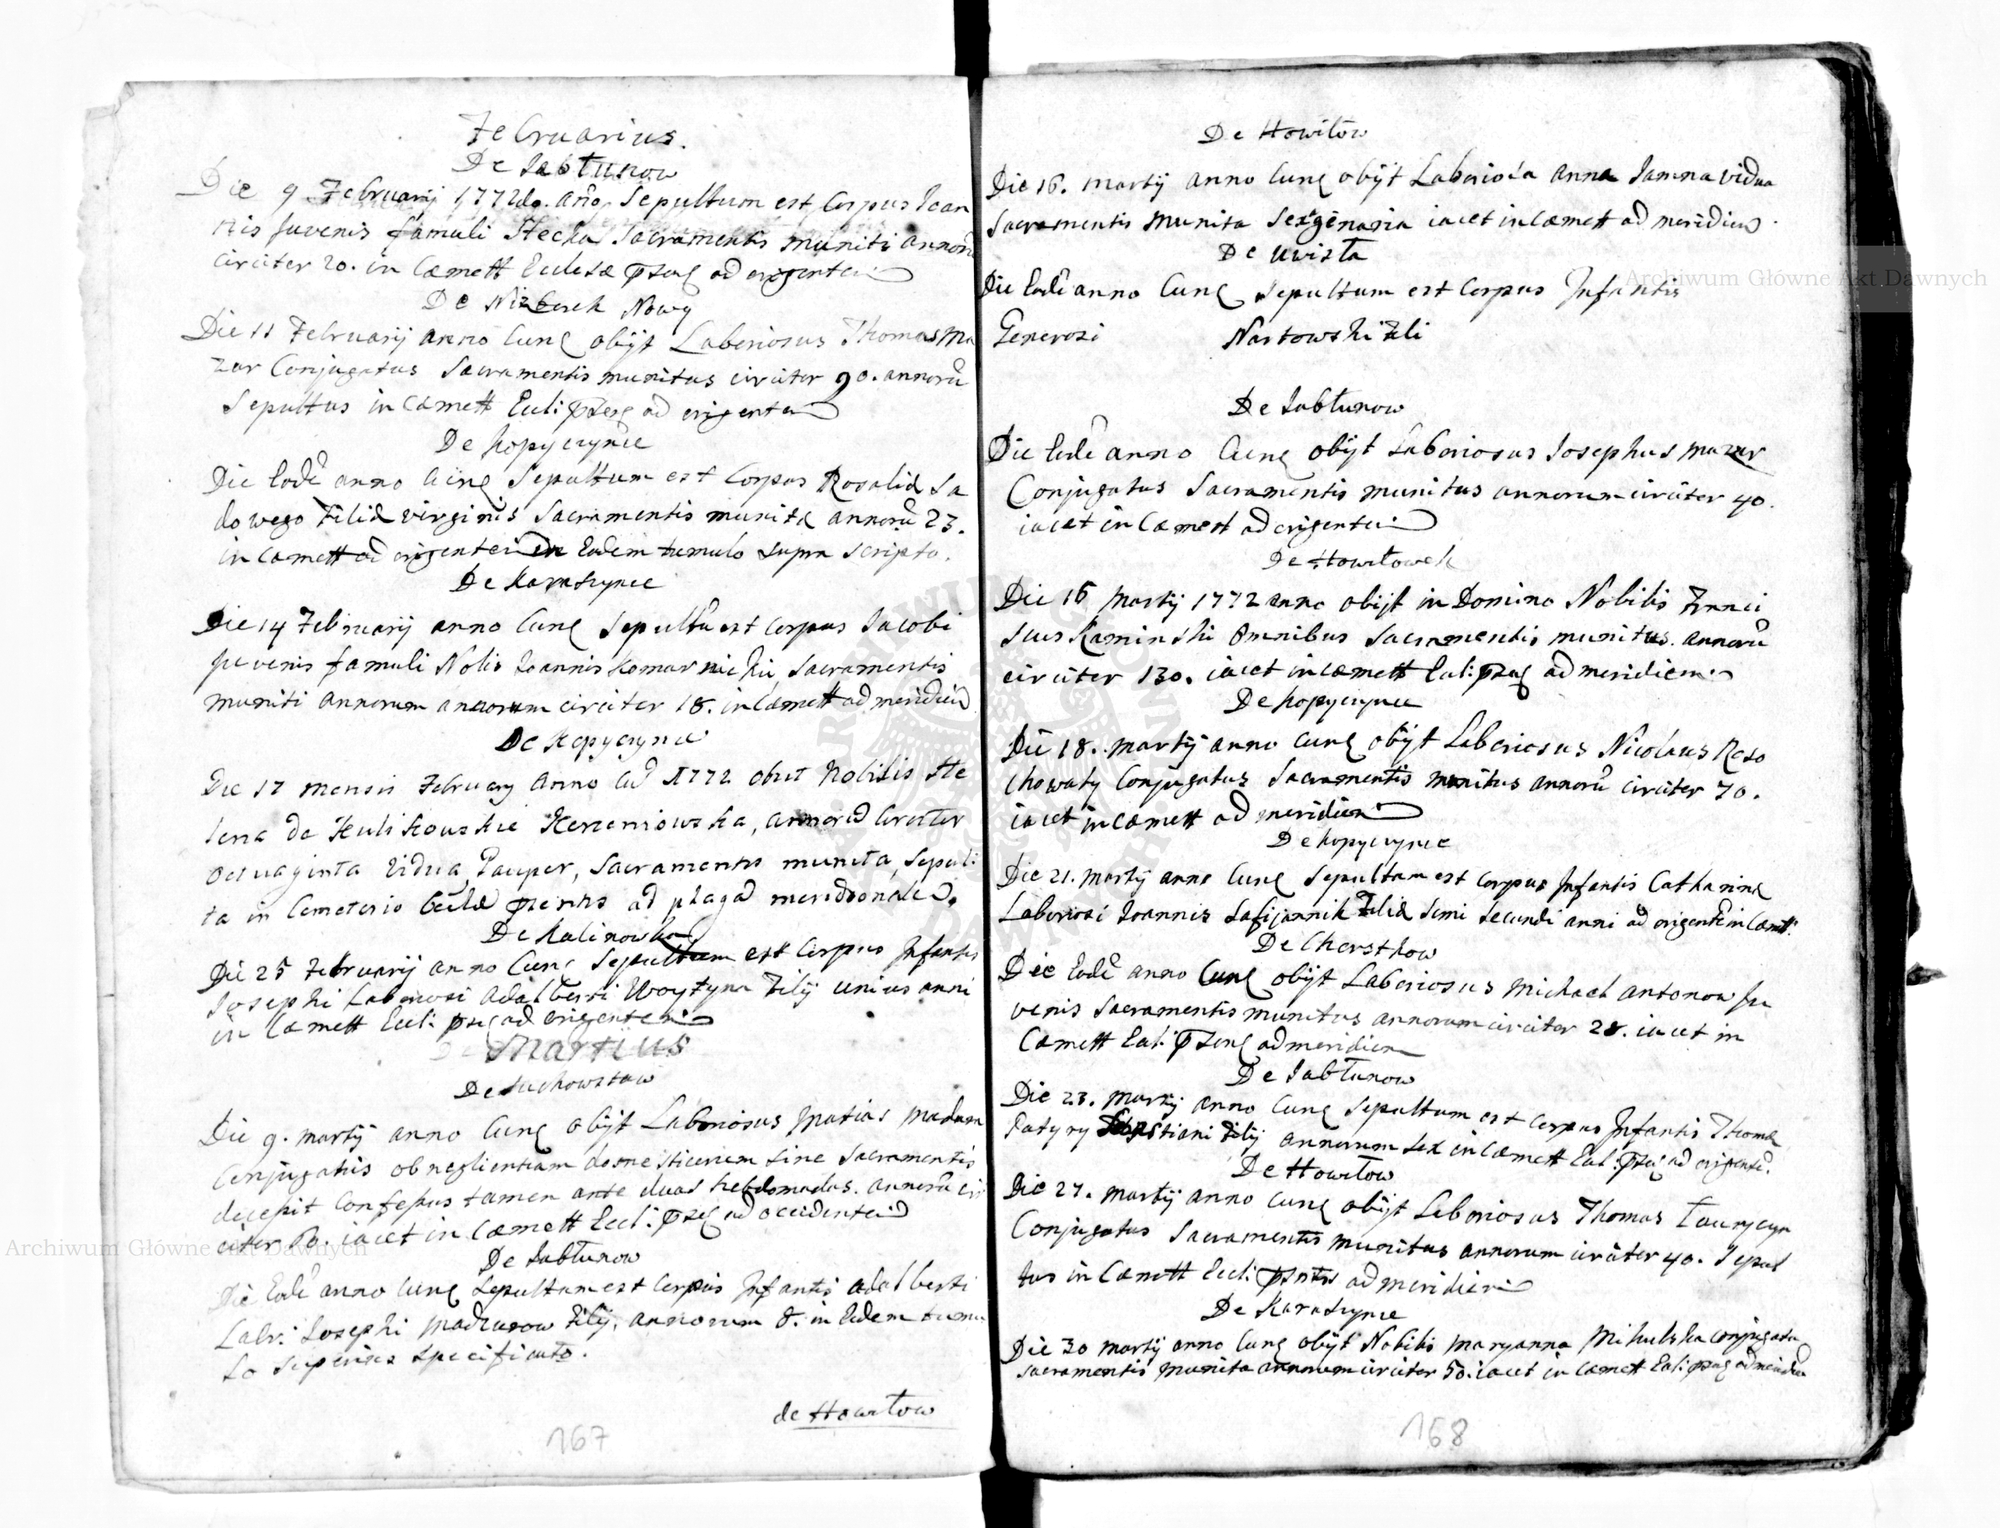 Februarius.
De Jabłunow
Die 9 Februarij 1772do. año, Sepultum est Corpus Ioan
nis Juvenis famuli Stecka Sacramentis muniti annorū
circiter 20. in Cæmett Ecclesæ ad orientem
De Niżborck Nowy
Die 11 Februarij anno Curr obijt Laboriosus Thomas Ma
zur Conjugatus Sacramentis munitus circiter 90. annorū
Sepultus in Cæmett Eccli ad orientem
De Kopyczynce
Die Eodē anno Curr Sepultum est Corpus Rosaliæ Sa
dowego Filiæ virginis Sacramentis munitæ annorū 23.
in Cæmett ad orientem in Eodem tumulo supra scripto.
De Karaszynce
Die 14 Februarij anno Curr Sepultū est Corpus Jacobi
Juvenis famuli Nobis Ioannis Komarnickii, Sacramentis
muniti annorum annorum circiter 18. in Cæmett ad meridiem
De Kopyczynce
Die 17 mensis February Anno 1772 obiit Nobilis He
lena de Kulikowskie Korzeniowska, annorū Circiter
octuaginta vidua, Pauper, Sacramentis munita, Sepul
ta in Cemeterio Eccłæ ad plagā meridionalē.
De Kalinowka
Die 25 Februarij anno Curr Sepultum est Corpus Infantis
Josephi Laboriosi Adalberti Woytyna Filij unius anni
in Cæmett Eccl: ad orientem
Martius
De Suchowstaw
Die 9. martij anno Curr obijt Laboriosus Matias Madara
Conjugatus ob neglientiam domesticorum sine Sacramentis
decepit Confessus tamen ante duas hebdomadas. annorū cir
citer 60. iacet in Cæmett Eccl: ad occidentem
De Jabłunow
Die Eodē anno Curr Sepultum est Corpus Infantis adalberti
Labr: Josephi Madzurow Filij, annorum 8. in Eodem tumu
lo superius specificato.
de Howiłow
167
De Howiłow
Die 16. martij anno Curr obijt Laboriosa anna Jamna vidua
Sacramentis munita Sexgenaria iacet in Cæmett ad meridiem.
De Uwisła
Die Eodē anno Curr Sepultum est Corpus Infantis
Generosi Nartowski Fili
De Jabłunow
Die Eodē anno Curr obijt Laboriosus Josephus Mazur
Conjugatus Sacramentis munitus annorum circiter 40.
iacet in Cæmett ad orientem
De Howiłoweck
Die 16 Martij 1772 anno obijt in Domino Nobilis Franci
scus Kaminski omnibus Sacramentis munitus. annorū
circiter 130. iacet in Cæmett Eccl: ad meridiem
De Kopyczynce
Die 18. martij anno Curr obijt Laboriosus Nicolaus Roso
chowaty Conjugatus Sacramentis munitus annorū circiter 70.
iacet in Cæmett ad meridiem
De Kopyczynce
Die 21. martij anno Curr Sepultum est Corpus Infantis Catharinæ
Laboriosi Ioannis Safijannik Filiæ Semi Secundi anni ad orientē in Cæmtt.
De Chorostkow
Die Eodē anno Curr obijt Laboriosus Michael Antonow Ju
venis Sacramentis munitus annorum circiter 28. iacet in
Cæmett Eccl: ad meridiem
De Jabłunow
Die 23. Martij anno Curr Sepultum est Corpus Infantis Thomæ
Sebastiani Filij annorum sex in Cæmett Eccl: ad orientē.
De Howiłow
Die 27. Martij anno Curr obijt Laboriosus Thomas
Conjugatus Sacramentis munitus annorum circiter 40. Sepul
tus in Cæmett Eccl: ad meridiem
De Karaszynce
Die 30 martij anno Curr obijt Nobilis Maryanna Mikulska conjugata
Sacramentis munita annorum circiter 50. iacet in Cæmett Eccl: ad meridiem
168
Archiwum Główne Akt Dawnych
Archiwum Główne Akt Dawnych